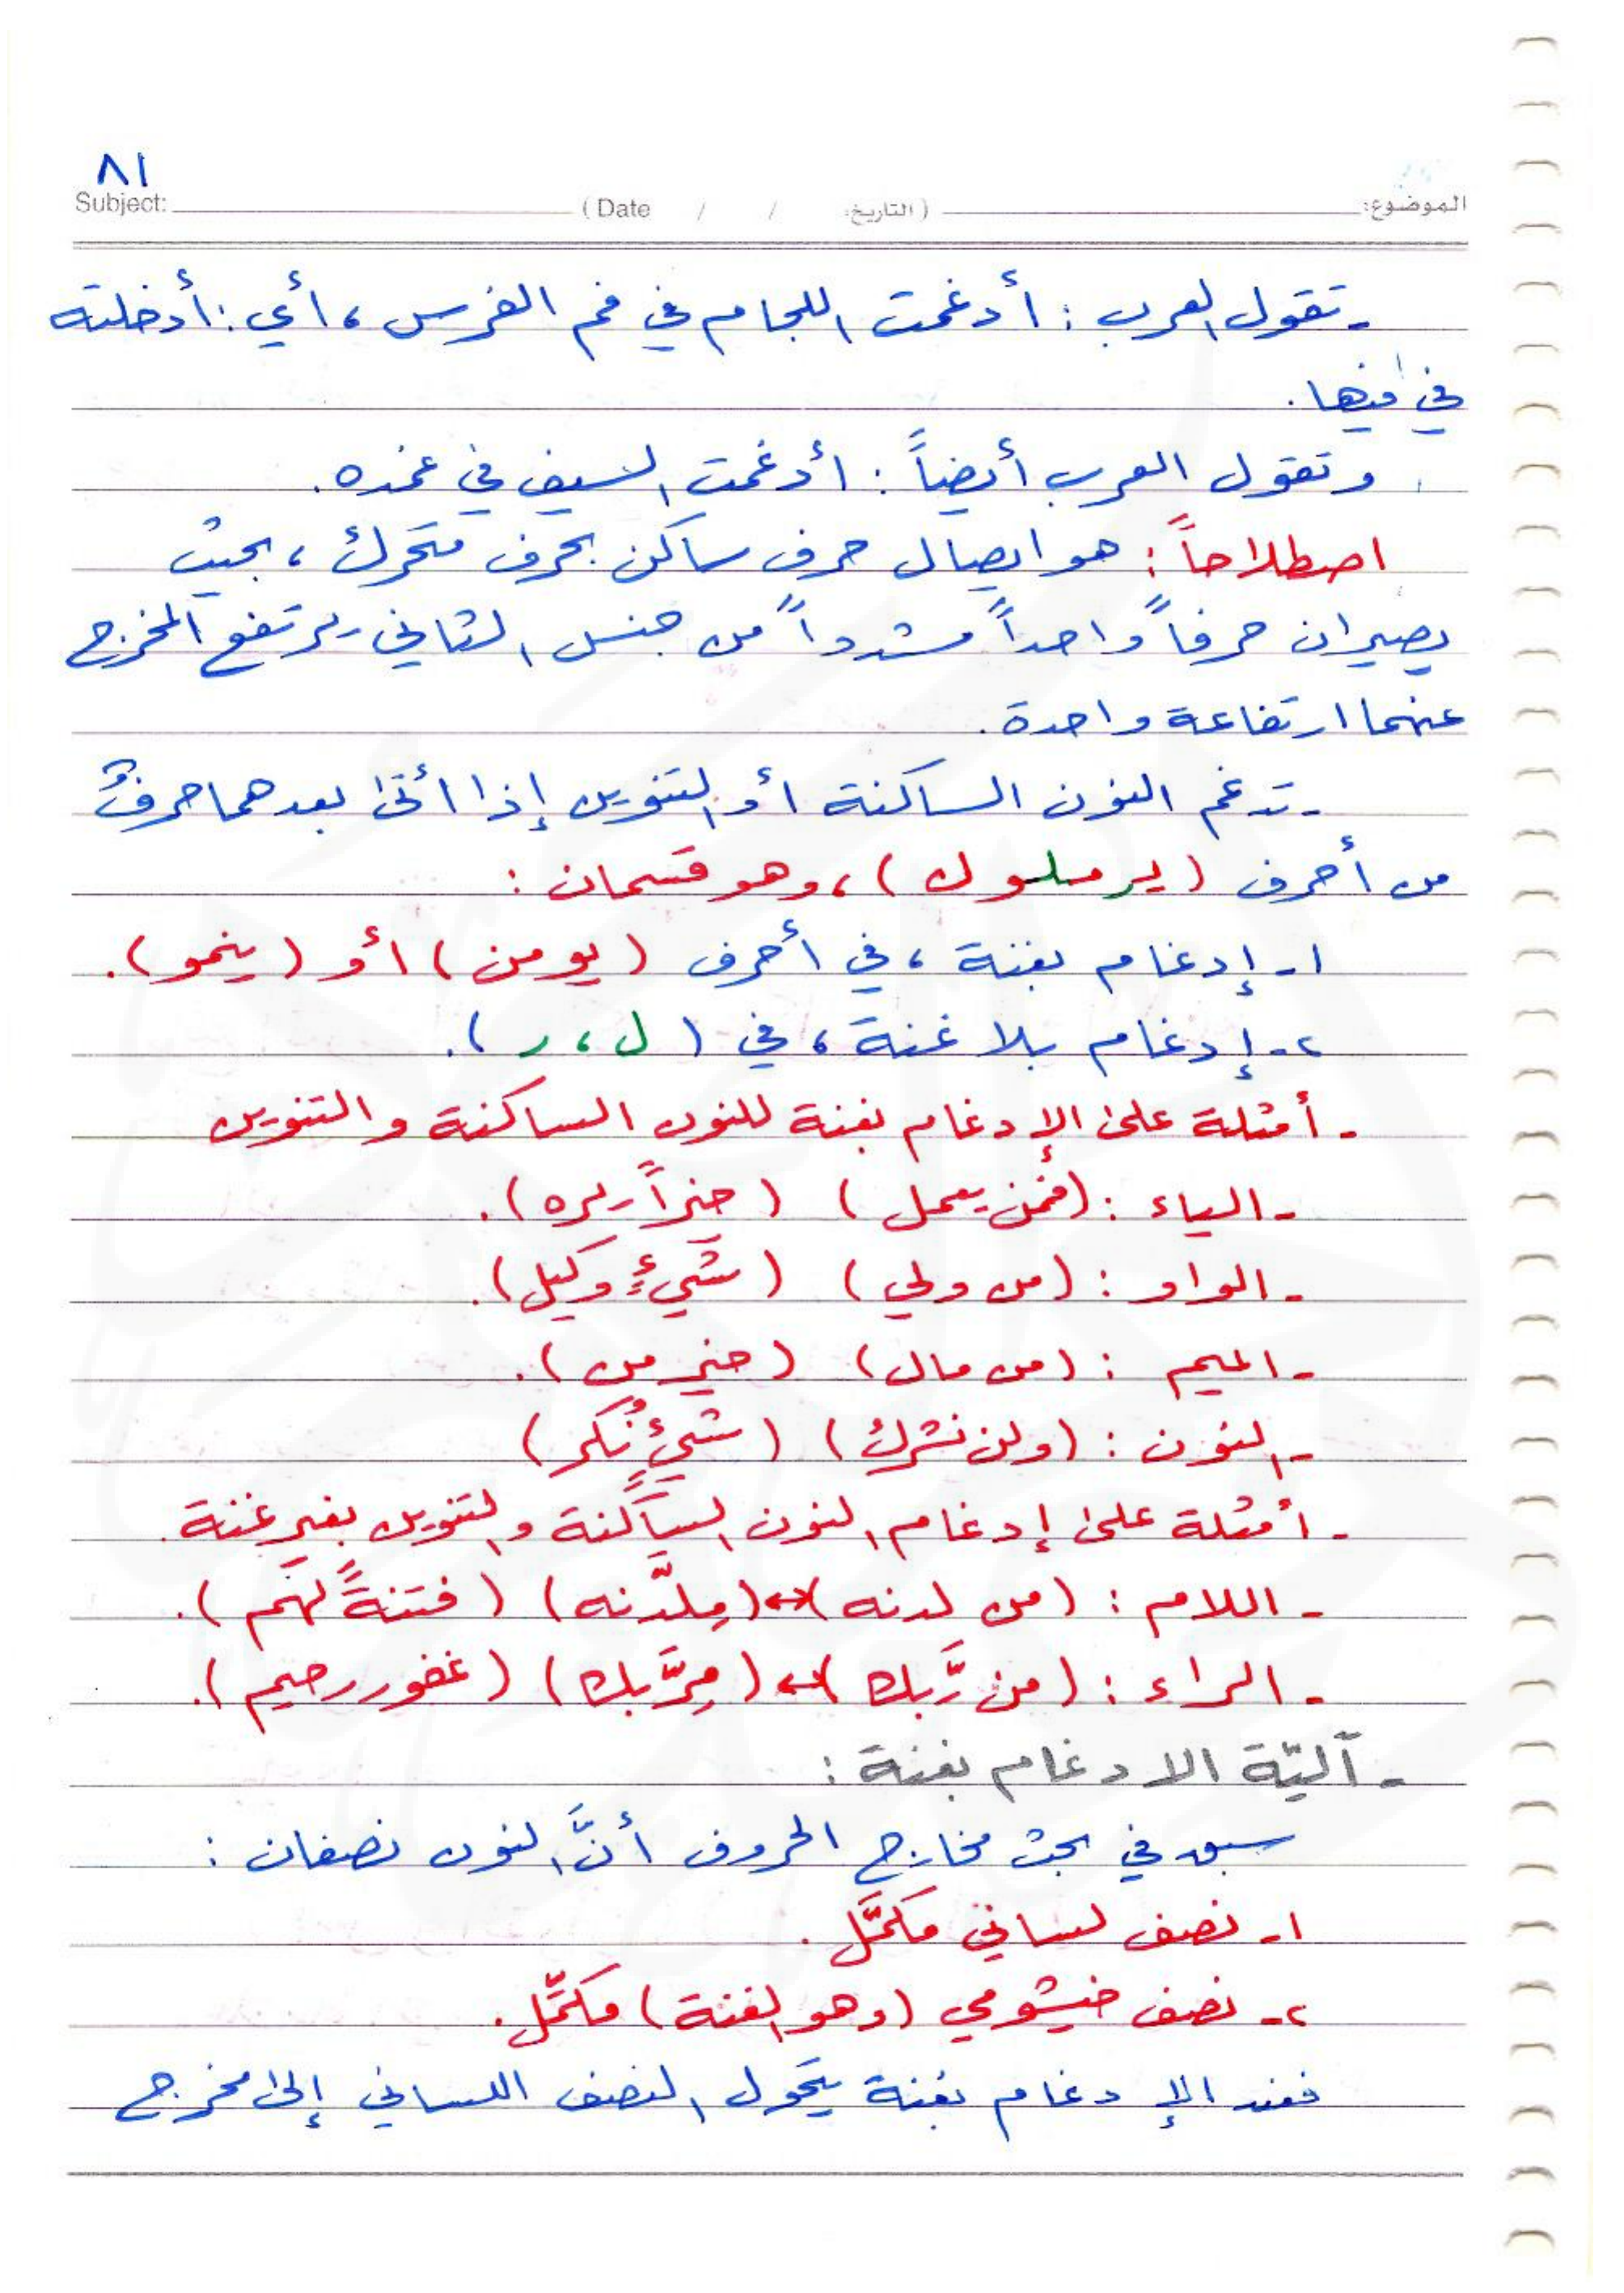 ٨١
Subject: (Date / / التاريخ:) الموضوع:
- تقول العرب : أدغمت اللجام في فم الفرس ، أي : أدخلته
في فيها .
وتقول العرب أيضاً : أدغمت السيف في غمده .
اصطلاحاً : هو ايصال حرف ساكن بحرف متحرك ، بحيث
يصيران حرفاً واحداً مشدداً من جنس الثاني يرتفع المخرج
عنهما ارتفاعة واحدة .
- تدغم النون الساكنة أو التنوين إذا أتى بعدهما حرفٌ
من أحرف ( يرملون ) ، وهو قسمان :
١- إدغام بغنة ، في أحرف ( يومن ) أو ( ينمو ) .
٢- إدغام بلا غنة ، في ( ل ، ر ) .
- أمثلة على الإدغام بغنة للنون الساكنة والتنوين
- الياء : ( فمن يعمل ) ( خيراً يره ) .
- الواو : ( من ولي ) ( شيءٍ وكيل ) .
- الميم : ( من مال ) ( خير من ) .
- النون : ( ولن نشرك ) ( شيءٍ نُكر )
- أمثلة على إدغام النون الساكنة والتنوين بغير غنة .
- اللام : ( من لدنه ) ↔ ( مِلَّدنه ) ( فتنةً لهم ) .
- الراء : ( من رَّبك ) ↔ ( مِرَّبك ) ( غفور رحيم ) .
- آليّة الادغام بغنة :
سبق في بحث مخارج الحروف أنَّ النون نصفان :
١- نصف لساني مكمَّل .
٢- نصف خيشومي ( وهو الغنة ) مكمِّل .
فعند الإدغام بغنة يتحول النصف اللساني إلى مخرج